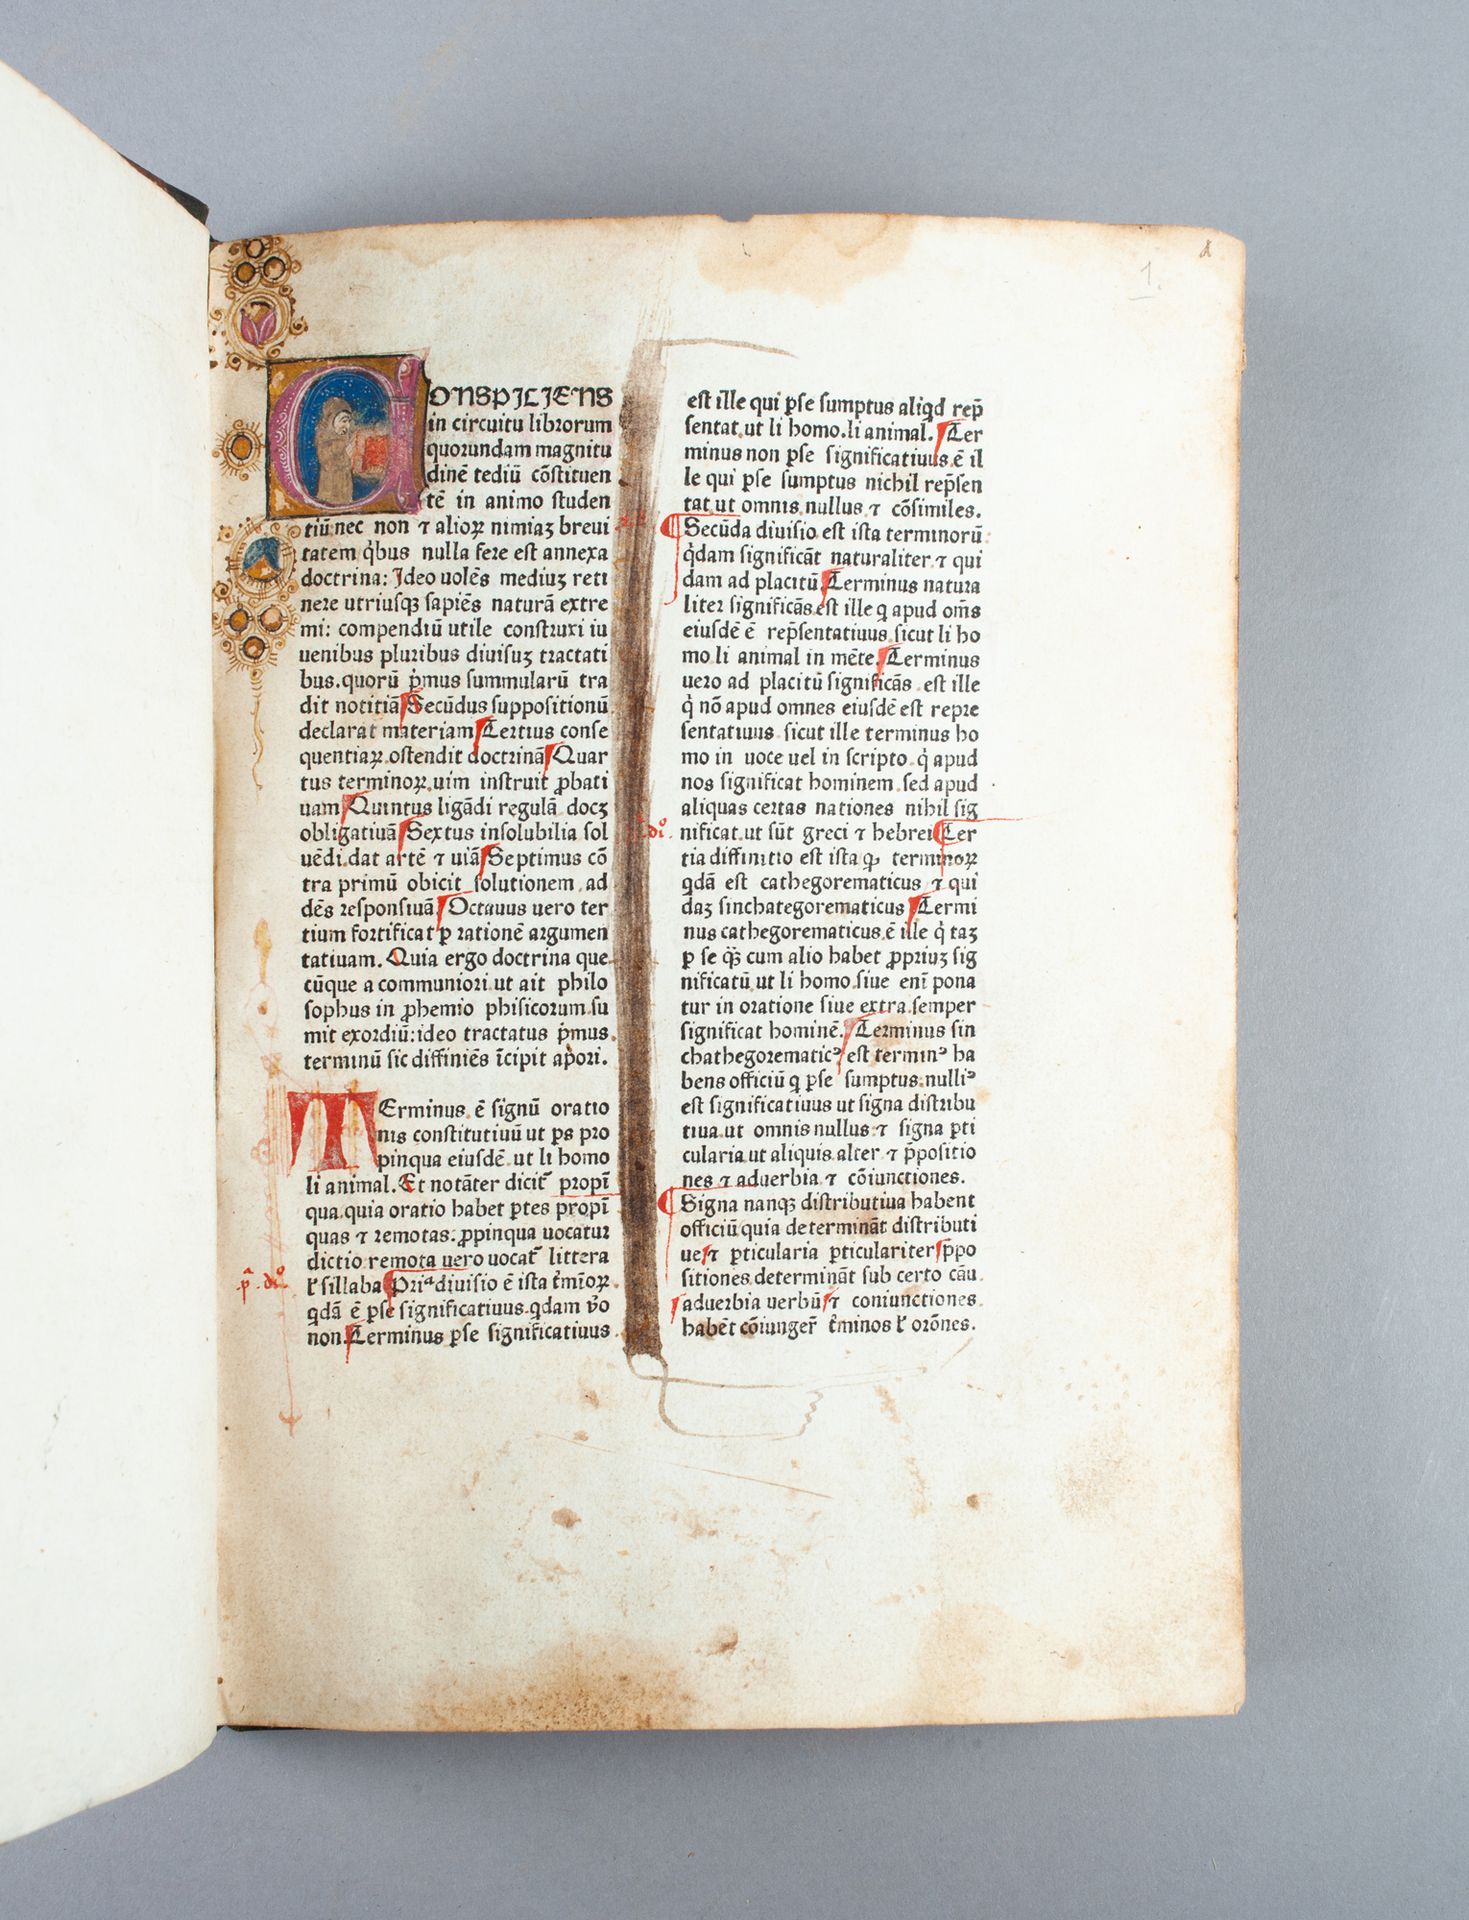 1.
CONSPICIENS
in circuitu librorum
quorundam magnitu
dinē tediū cōstituen
tē in animo studen
tiū: nec non ⁊ alioꝝ nimiaꝫ breui
tatem q̇bus nulla fere est annexa
doctrina: Ideo uolēs mediuꝫ reti
nere utriusqꝫ sapiēs naturā extre
mi: compendiū utile construxi iu
uenibus pluribus diuisuꝫ tractati
bus. quorū p̍mus summularū tra
dit notitiā Secūdus suppositionū
declarat materiam Tertius conse
quentiaꝝ. ostendit doctrinā Quar
tus terminoꝝ. uim instruit ꝓbati
uam Quintus ligādi regulā docꝫ
obligatiuā Sextus insolubilia sol
uēdi. dat artē ⁊ uiā Septimus cō
tra primū obicit solutionem. ad
dēs responsiuā Octauus uero ter
tium fortificat ꝑ rationē argumen
tatiuam. Quia ergo doctrina que
cūque a communiori. ut ait philo
sophus in ꝓhemio phisicorum. su
mit exordiū: ideo tractatus p̍mus.
terminū sic diffiniēs īcipit ap̍ori.
TErminus. ē signū oratio
nis constitutiuū ut ꝑs pro
pinqua eiusdē. ut li homo
li animal. Et notāter dicit᷑ propī
qua. quia oratio habet ꝑtes propī
quas ⁊ remotas: ꝓpinqua uocatur
dictio: remota uero uocat᷑ littera
ł sillaba Priᵃ diuisio ē ista t̍mīoꝝ.
p̄. diᵒ.
qdā ē ꝑse significatiuus. qdam v̊o
non. Terminus ꝑse significatiuus
est ille qui ꝑse sumptus aliqd rep̄
sentat. ut li homo. li animal. Ter
minus non ꝑse significatiuus. ē il
le qui ꝑse sumptus nichil rep̄sen
tat ut omnis. nullus ⁊ cōsimiles.
Secūda diuisio est ista terminorū
q̇dam significāt naturaliter. ⁊ qui
dam ad placitū. Terminus natura
liter significās. est ille q̇ apud om̄s
eiusdē ē rep̄sentatiuus. sicut li ho
mo. li animal in mēte. Terminus
uero ad placitū significās. est ille
q̇ nō apud omnes eiusdē est repre
sentatiuus sicut ille terminus ho
mo in uoce uel in scripto. q̇ apud
nos significat hominem. sed apud
aliquas certas nationes nihil sig
diᵒ.
nificat. ut sūt greci ⁊ hebrei Ter
tia diffinitio est ista ꝙ terminoꝝ
qdā est cathegorematicus ⁊ qui
daꝫ sinchategorematicus Termi
nus cathegorematicus. ē ille q̇ taꝫ
ꝑ se qꝫ cum alio habet ꝓpriuꝫ sig
nificatū. ut li homo. siue enī pona
tur in oratione siue extra. semper
significat hominē. Terminus sin
chathegorematicꝰ est terminꝰ ha
bens officiū q̇ ꝑse sumptus. nulliꝰ
est significatiuus ut signa distribu
tiua. ut omnis nullus ⁊ signa ꝑti
cularia. ut aliquis. alter. ⁊ p̄positio
nes ⁊ aduerbia. ⁊ cōiunctiones.
Signa nanqꝫ distributiua habent
officiū quia determināt distributi
ue ⁊ ꝑticularia ꝑticulariter p̄po
sitiones determināt sub certo cāu
aduerbia uerbū ⁊ coniunctiones.
habēt cōiunger᷑ t̍minos ł orōnes.